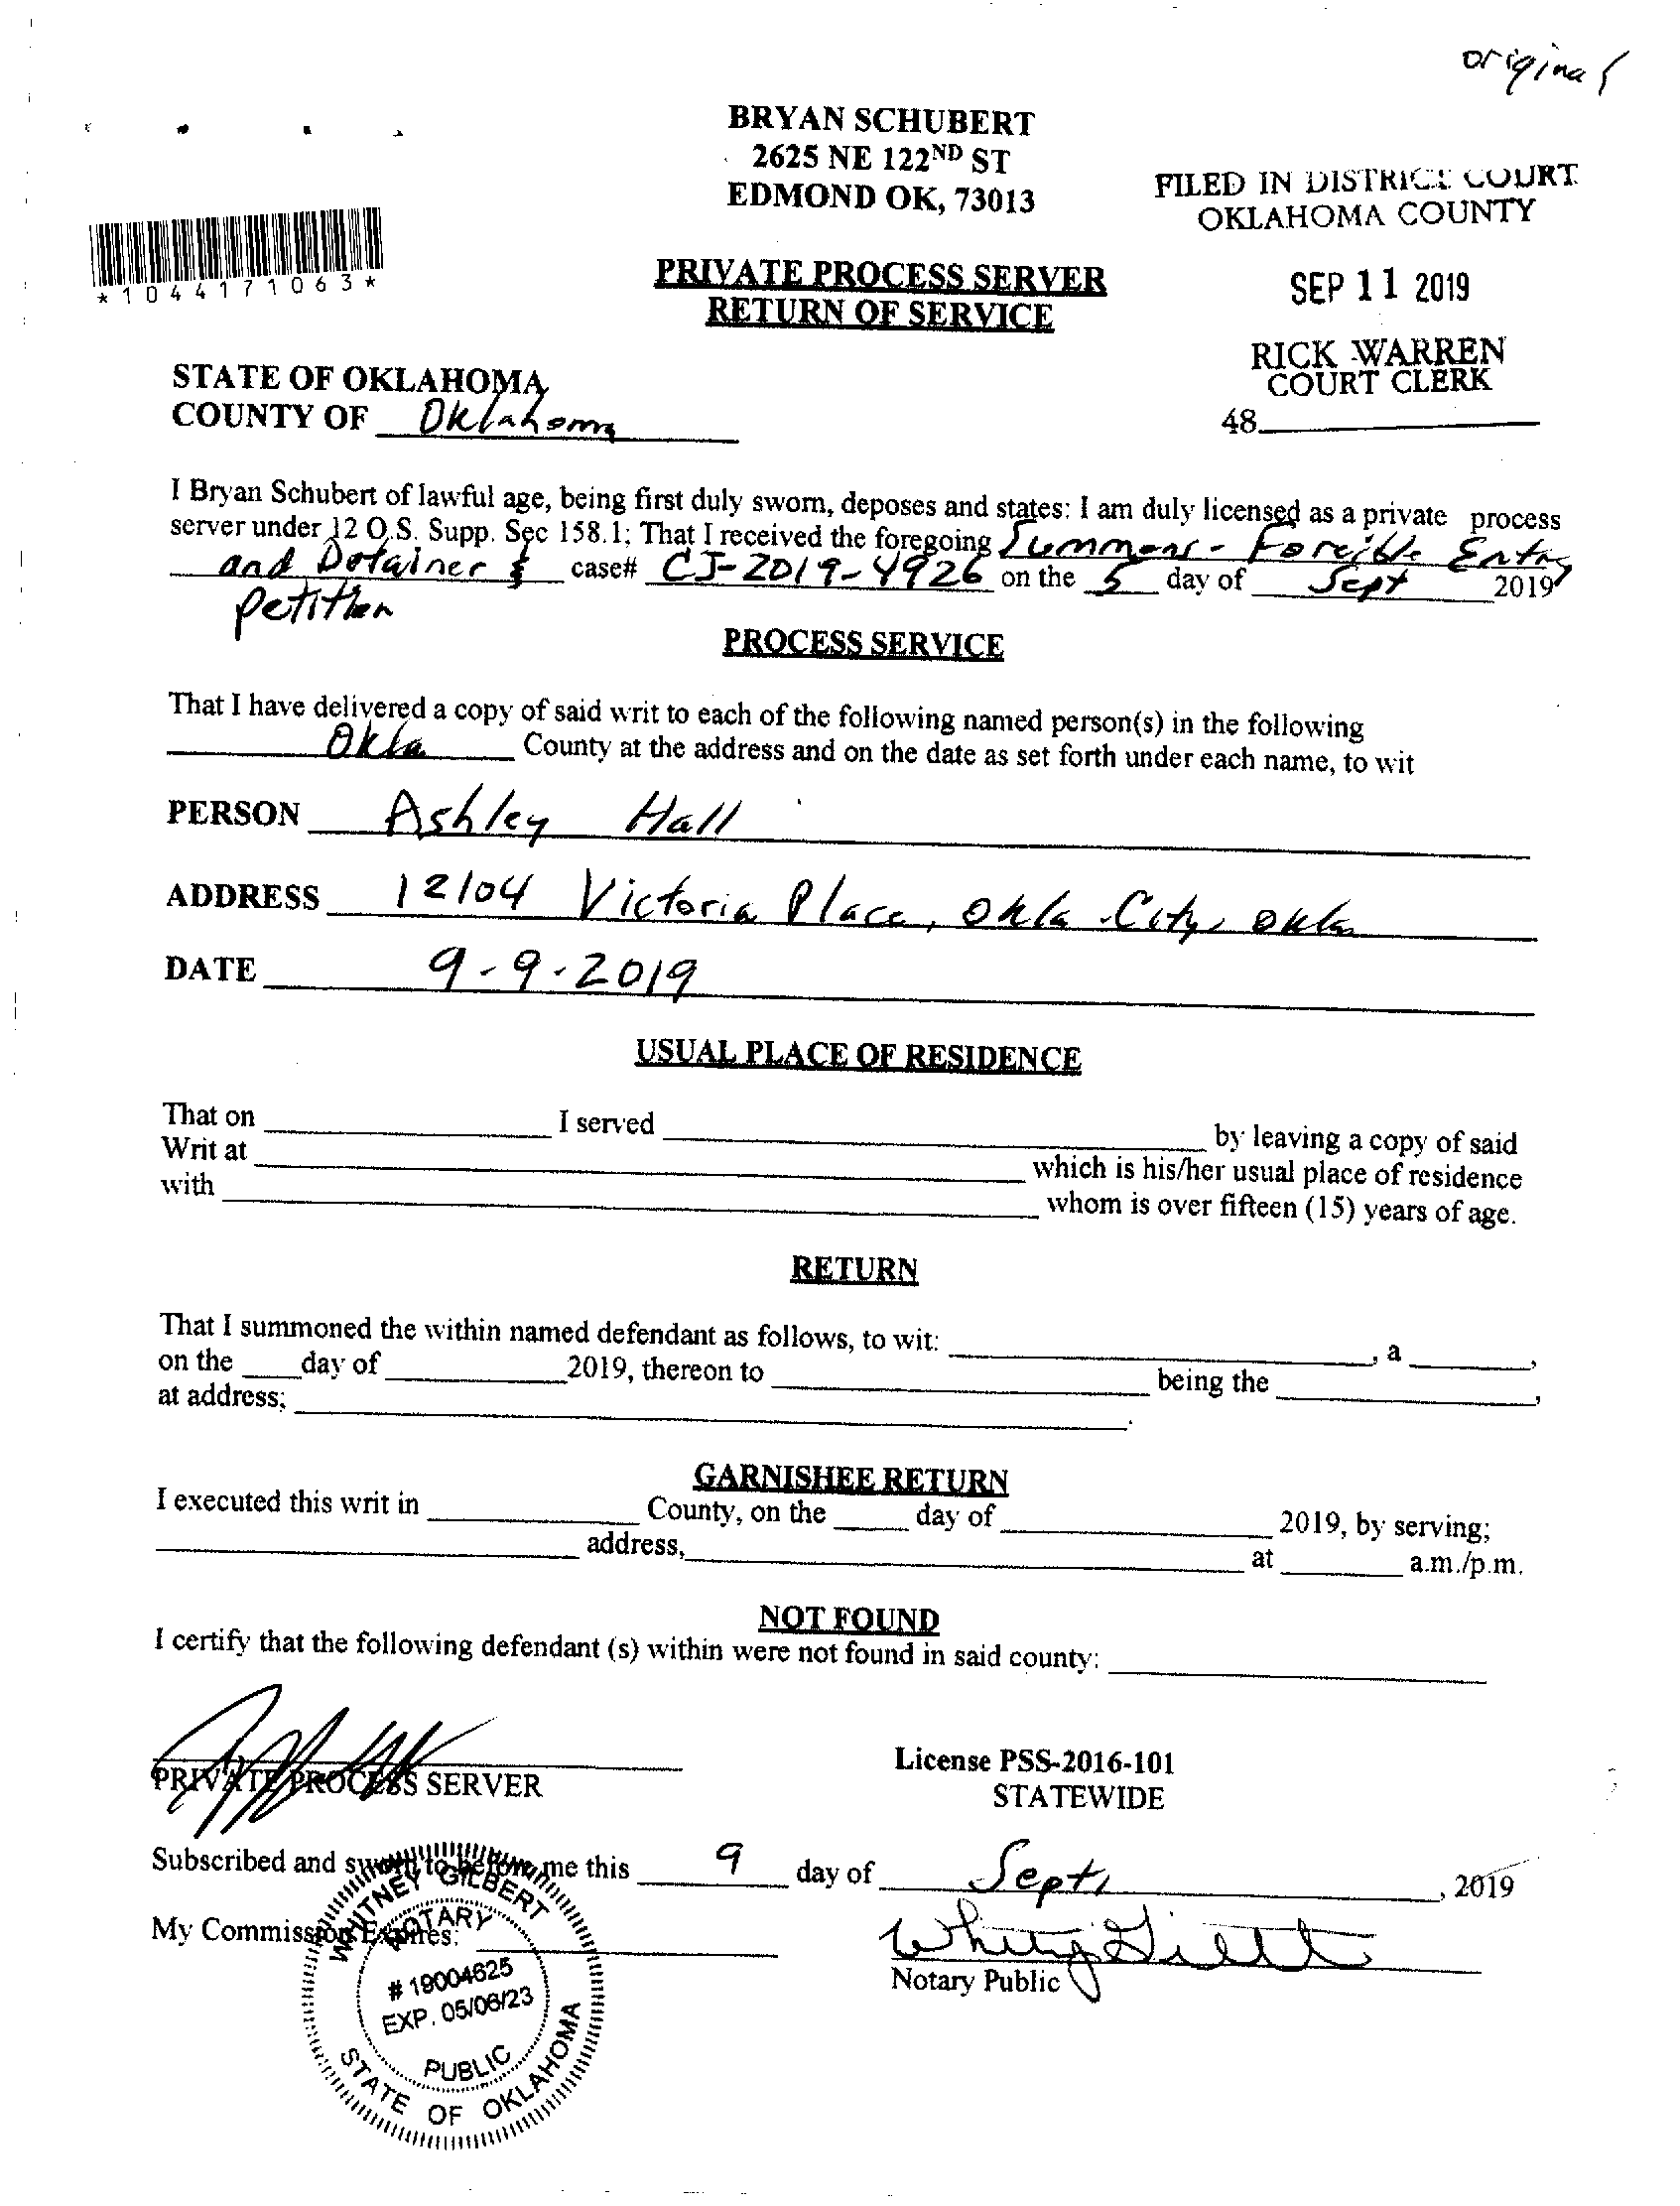 original
BRYAN SCHUBERT
2625 NE 122ND ST
EDMOND OK, 73013
FILED IN DISTRICT COURT
OKLAHOMA COUNTY
*1044171063*
PRIVATE PROCESS SERVER
RETURN OF SERVICE
SEP 11 2019
RICK WARREN
COURT CLERK
48
STATE OF OKLAHOMA
COUNTY OF Oklahoma
I Bryan Schubert of lawful age, being first duly sworn, deposes and states: I am duly licensed as a private process
server under 12 O.S. Supp. Sec 158.1; That I received the foregoing Summons - Forcible Entry
and Detainer & case# CJ-2019-4926 on the 5 day of Sept 2019
petition
PROCESS SERVICE
That I have delivered a copy of said writ to each of the following named person(s) in the following
Okla County at the address and on the date as set forth under each name, to wit
PERSON Ashley Hall
ADDRESS 12104 Victoria Place, Okla City, Okla
DATE 9-9-2019
USUAL PLACE OF RESIDENCE
That on I served by leaving a copy of said
Writ at which is his/her usual place of residence
with whom is over fifteen (15) years of age.
RETURN
That I summoned the within named defendant as follows, to wit: , a ,
on the day of 2019, thereon to being the ,
at address; .
GARNISHEE RETURN
I executed this writ in County, on the day of 2019, by serving;
address, at a.m./p.m.
NOT FOUND
I certify that the following defendant (s) within were not found in said county:
PRIVATE PROCESS SERVER
License PSS-2016-101
STATEWIDE
Subscribed and sworn to before me this 9 day of Sept, , 2019
My Commission Expires:
Notary Public
WHITNEY GILBERT
NOTARY
# 19004625
EXP. 05/06/23
PUBLIC
STATE OF OKLAHOMA